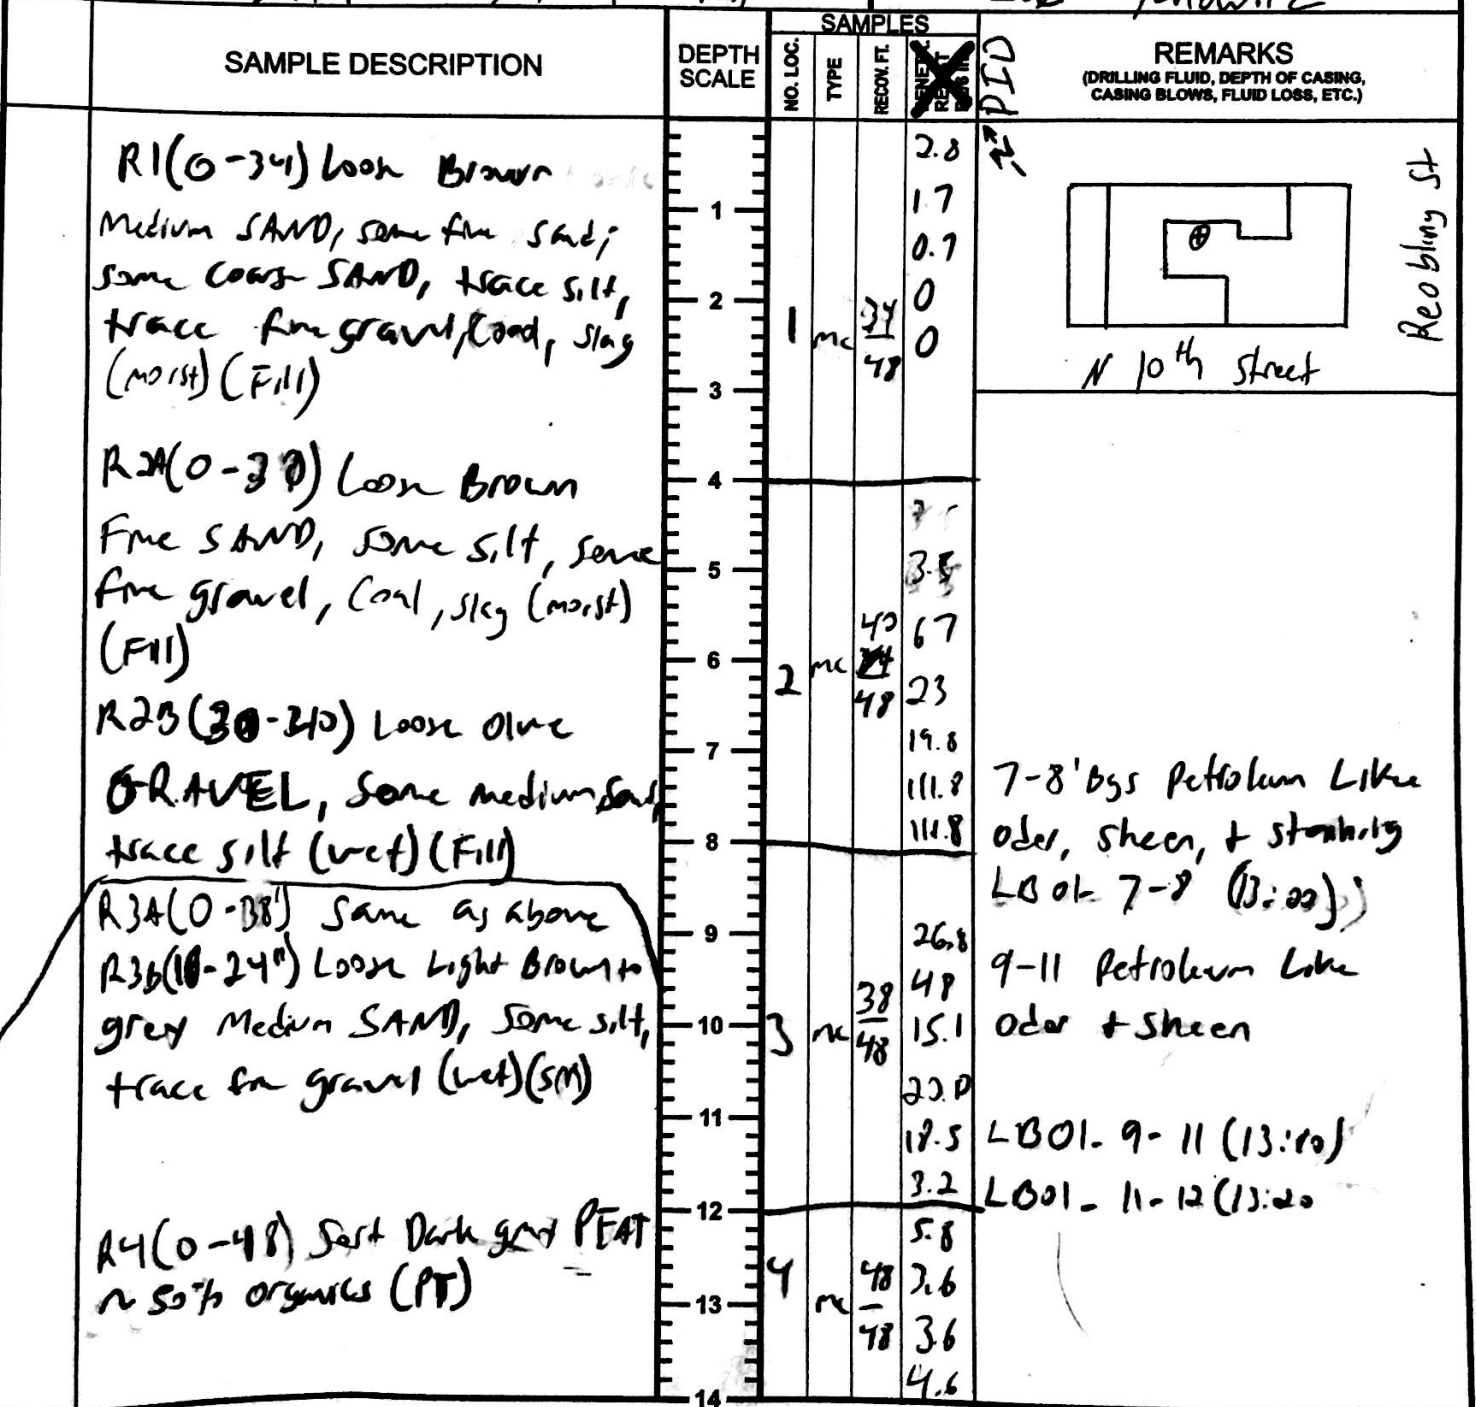 SAMPLE DESCRIPTION
DEPTH SCALE
SAMPLES
NO. LOC.
TYPE
RECOV. FT.
PID
REMARKS
(DRILLING FLUID, DEPTH OF CASING,
CASING BLOWS, FLUID LOSS, ETC.)
R1(0-34) Loose Brown
Medium SAND, some fine sand,
some coarse SAND, trace silt,
trace fine gravel, Coal, slag
(moist) (Fill)
R2A(0-30) Loose Brown
Fine SAND, some silt, some
fine gravel, Coal, slag (moist)
(Fill)
R2B(30-40) Loose Olive
GRAVEL, Some medium sand,
trace silt (wet) (Fill)
R3A(0-    ) Same as above
R3b(   -24") Loose Light Brown to
grey Medium SAND, Some silt,
trace fine gravel (wet)(SM)
R4(0-48) Soft Dark grey PEAT
~ 50% organics (PT)
1
2
3
4
5
6
7
8
9
10
11
12
13
14
1 mc 34/48
2 mc 40/48
3 mc 38/48
4 mc 48/48
2.8
1.7
0.7
0
0
3.5
67
23
19.8
111.8
111.8
26.8
48
15.1
20.0
18.5
3.2
5.8
3.6
3.6
4.6
N
Reobling St
N 10th Street
7-8' bgs Petroleum Like
odor, sheen, + staining
LB01- 7-8' (13:00)
9-11 Petroleum Like
odor + sheen
LB01- 9-11 (13:10)
LB01- 11-12 (13:20